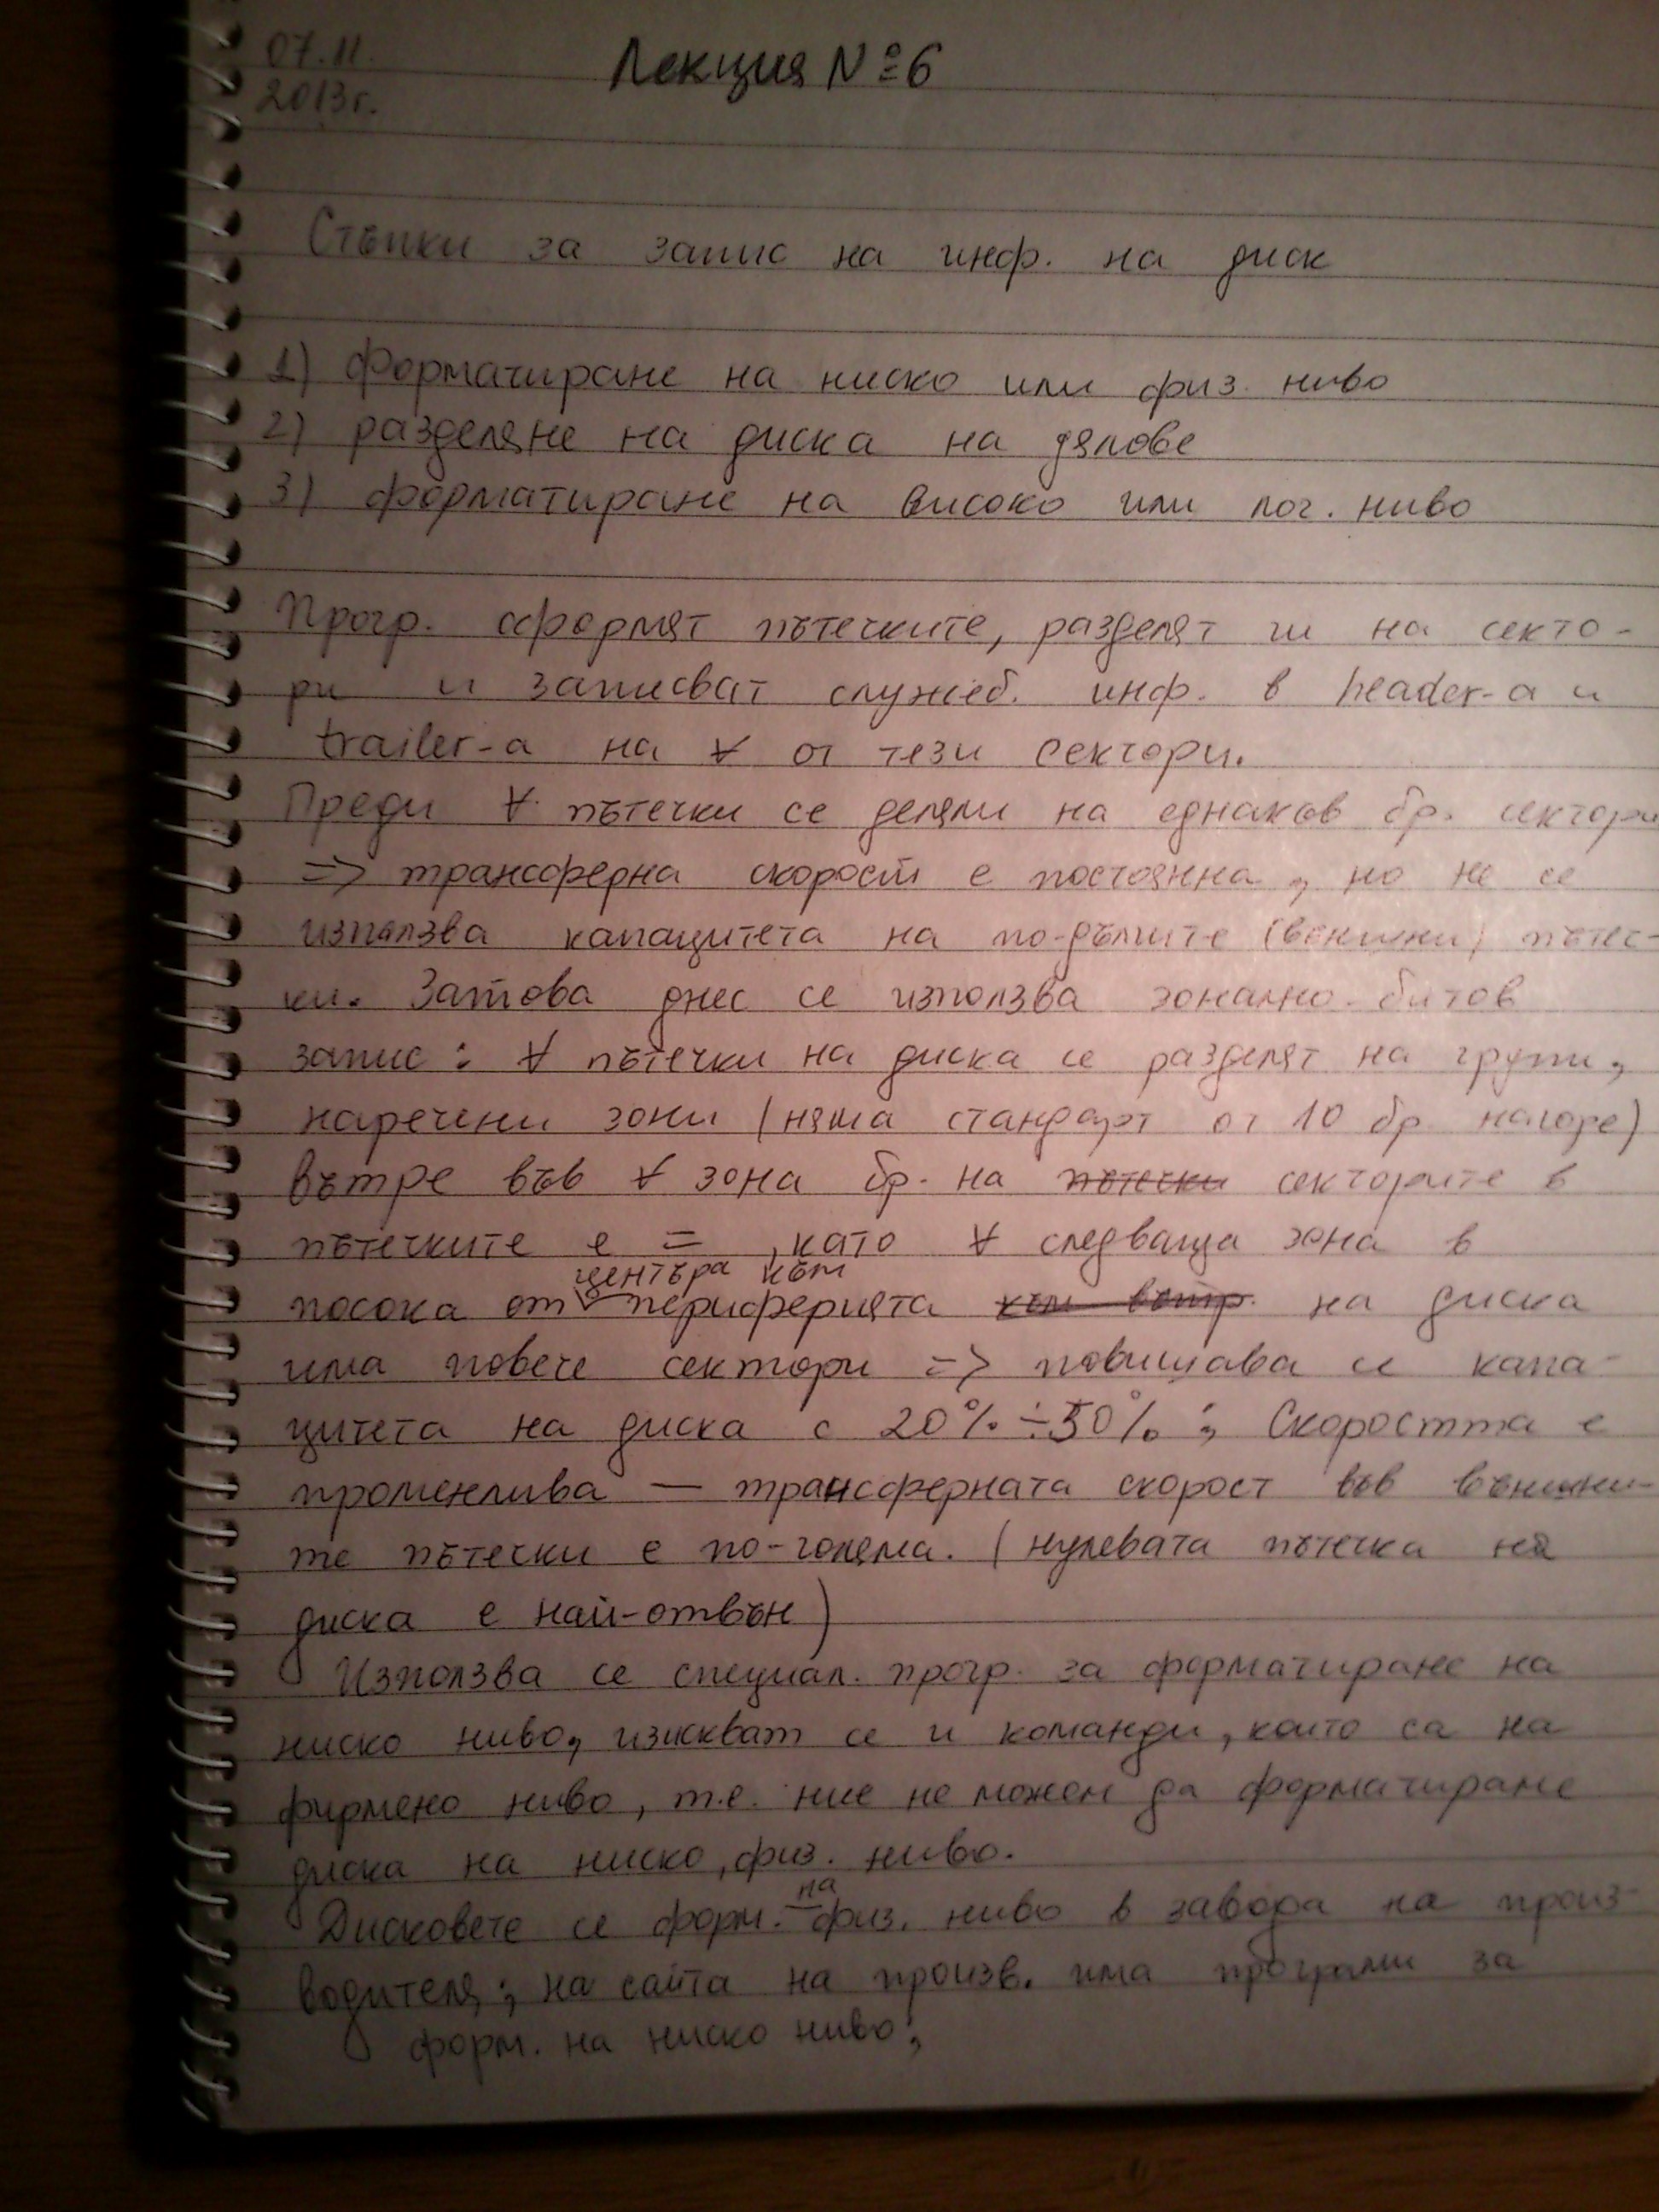 07.11.
2013г.
Лекция №6
Стъпки за запис на инф. на диск
1) форматиране на ниско или физ. ниво
2) разделяне на диска на дялове
3) форматиране на високо или лог. ниво
Прогр. оформят пътечките, разделят ги на секто-
ри и записват служеб. инф. в header-а и
trailer-а на ∀ от тези сектори.
Преди ∀ пътечки се деляли на еднакъв бр. сектори
=> трансферна скорост е постоянна, но не се
използва капацитета на по-дългите (външни) пътеч-
ки. Затова днес се използва зонално-битов
запис: ∀ пътечки на диска се разделят на групи,
наречени зони (няма стандарт от 10 бр. нагоре)
вътре във ∀ зона бр. на пътечки секторите в
пътечките е = , като ∀ следваща зона в
центъра към
посока от периферията към вътр. на диска
има повече сектори => повишава се капа-
цитета на диска с 20% ÷ 50%; Скоростта е
променлива — трансферната скорост във външни-
те пътечки е по-голяма. (нулевата пътечка на
диска е най-отвън)
Използва се специал. прогр. за форматиране на
ниско ниво, изискват се и команди, които са на
фирмено ниво, т.е. ние не можем да форматиране
диска на ниско, физ. ниво.
на
Дисковете се форм. физ. ниво в завода на произ-
водителя; на сайта на произв. има програми за
форм. на ниско ниво;